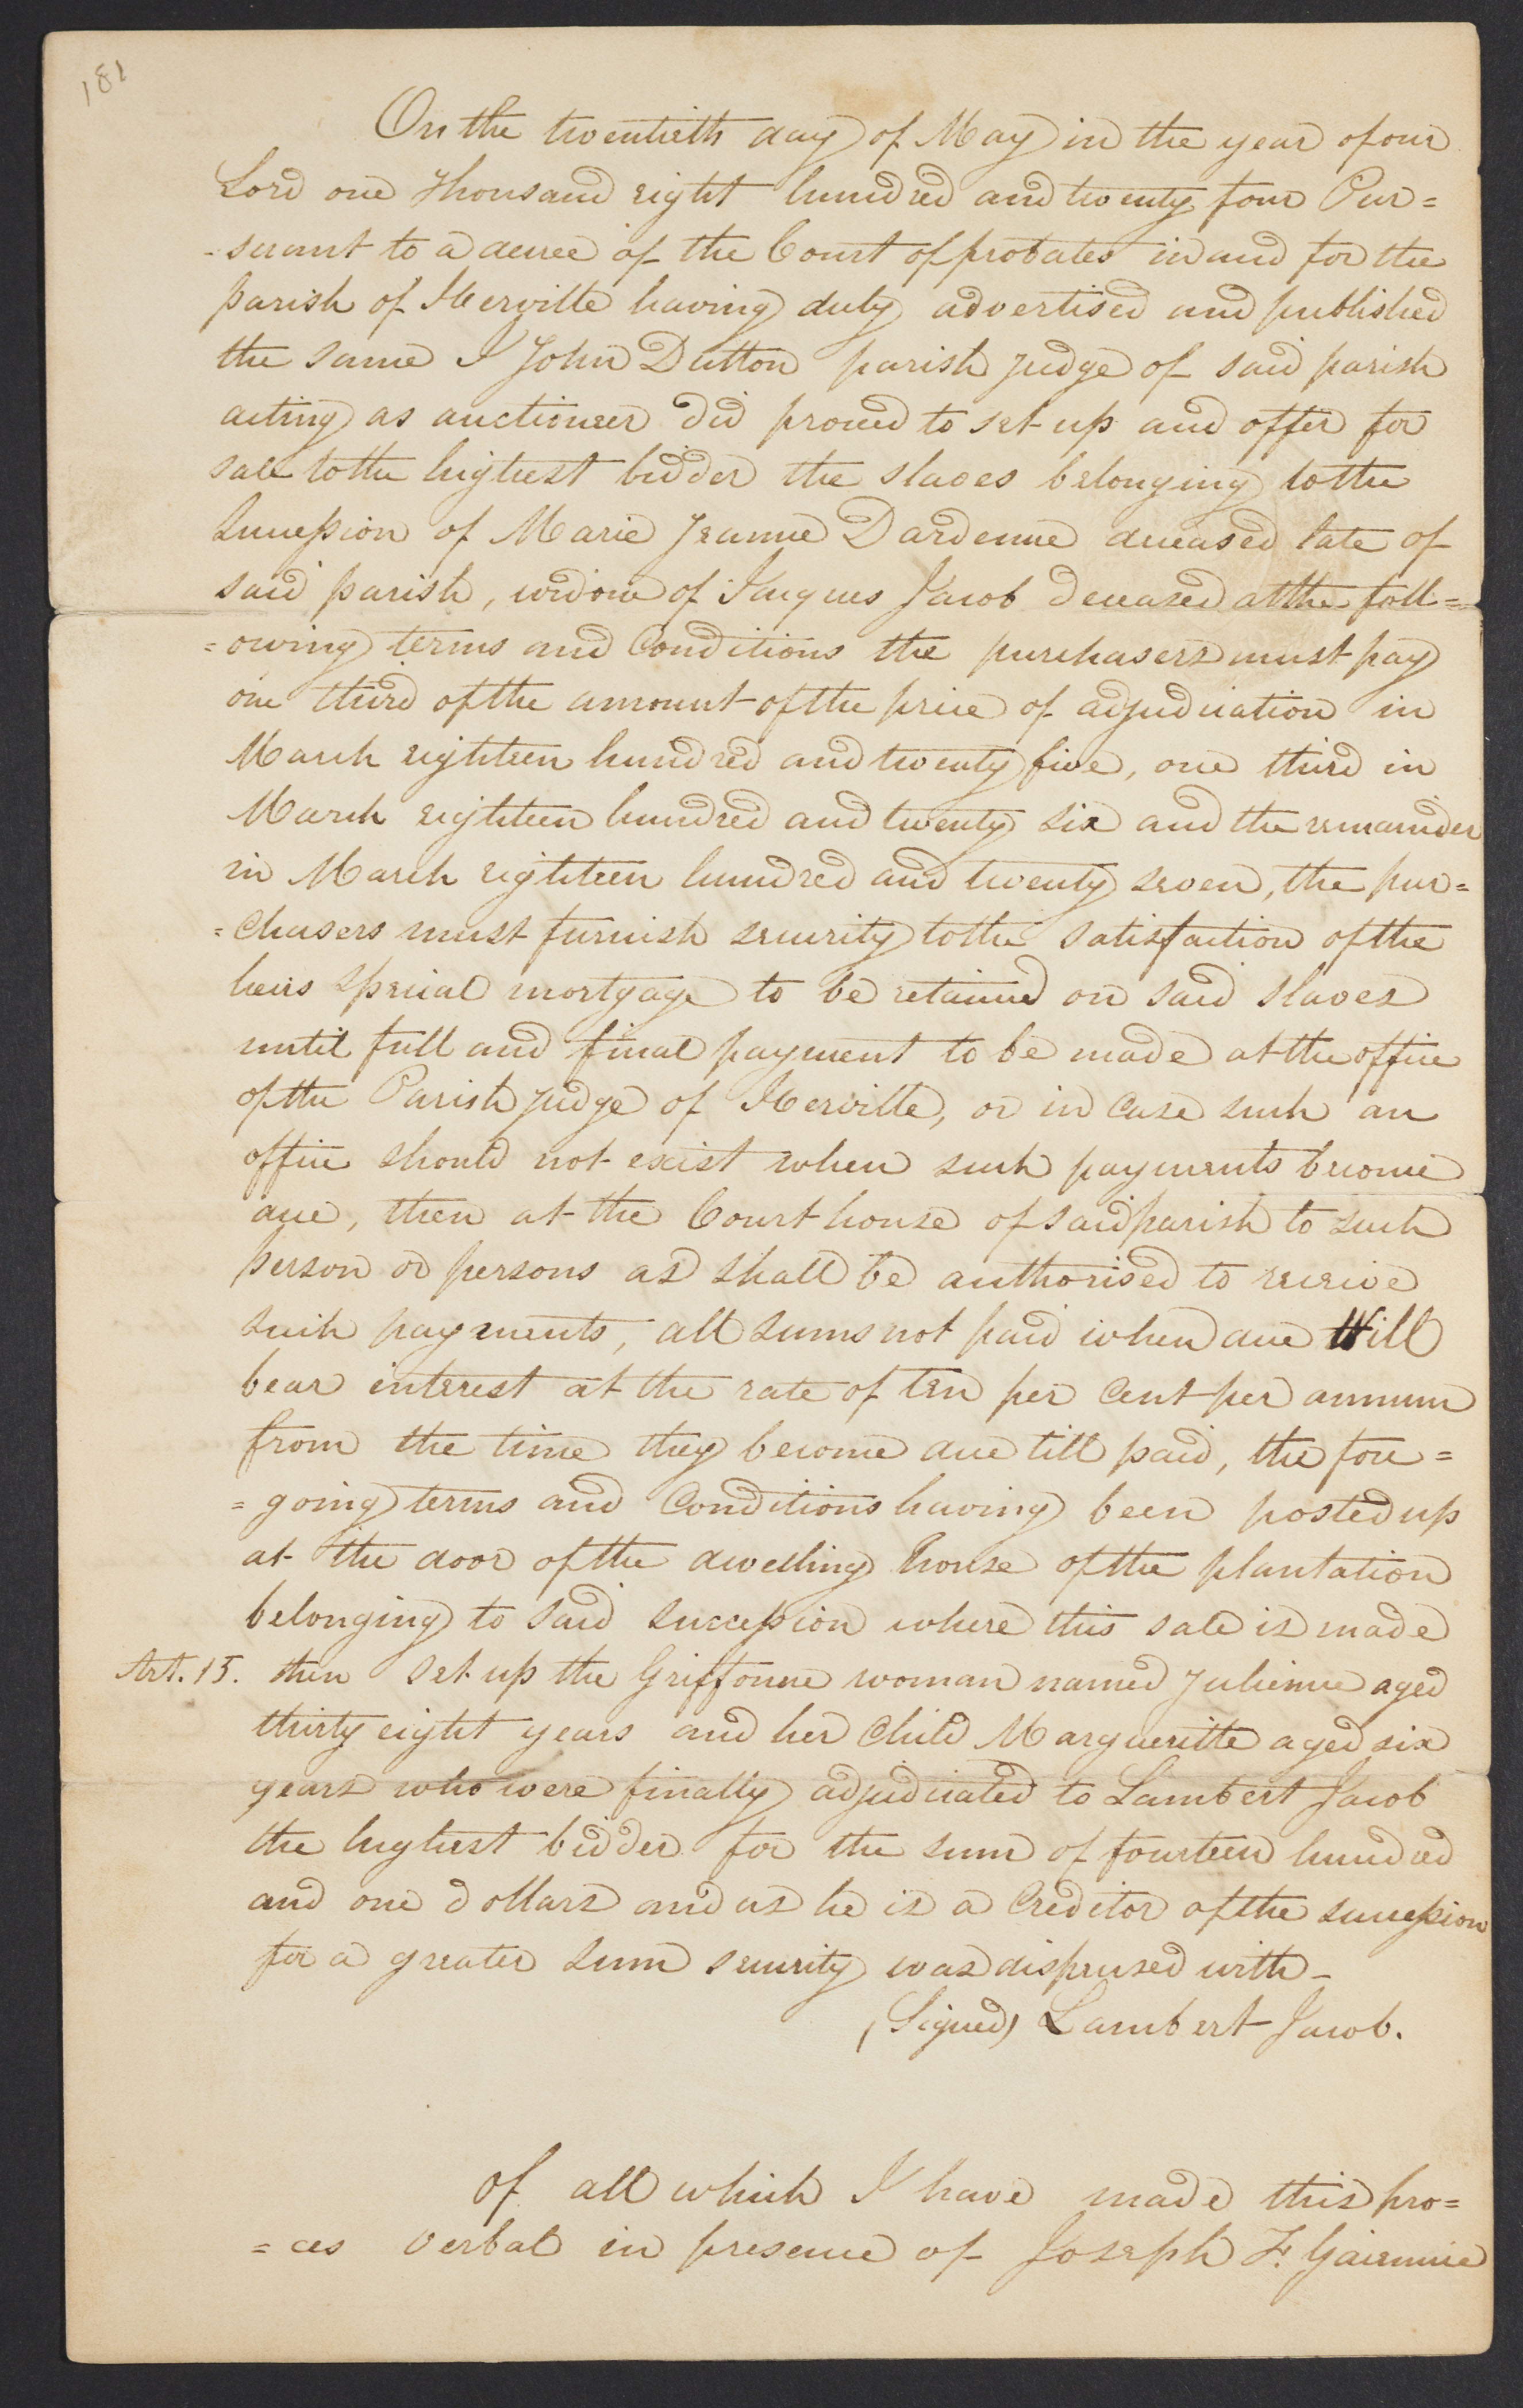 181
On the twentieth day of May in the year of our
Lord one thousand eight hundred and twenty four Pur=
-suant to a decree of the Court of probates in and for the
parish of Iberville having duly advertised and published
the same I John Dutton parish judge of said parish
acting as auctioneer did proceed to set up and offer for
sale to the highest bidder the slaves belonging to the
succession of Marie Jeanne Dardenne deceased late of
said parish, widow of Jacques Jacob deceased at the foll=
=owing terms and Conditions the purchasers must pay
one third of the amount of the price of adjudication in
March eighteen hundred and twenty five, one third in
March eighteen hundred and twenty six and the remainder
in March eighteen hundred and twenty seven, the pur=
=chasers must furnish security to the satisfaction of the
heirs special mortgage to be retained on said slaves
until full and final payment to be made at the office
of the Parish judge of Iberville, or in case such an
office should not exist when such payments become
due, then at the Court house of said parish to such
person or persons as shall be authorised to receive
such payments, all sums not paid when due Will
bear interest at the rate of ten per Cent per annum
from the time they become due till paid, the fore=
=going terms and Conditions having been posted up
at the door of the dwelling house of the plantation
belonging to said succession where this sale is made
Art. 15. then set up the Griffonne woman named Julienne aged
thirty eight years and her Child Margueritte aged six
years who were finally adjudicated to Lambert Jacob
the highest bidder for the sum of fourteen hundred
and one dollars and as he is a Creditor of the succession
for a greater sum security was dispensed with-
(Signed) Lambert Jacob.
of all which I have made this pro=
=ces verbal in presence of Joseph F.